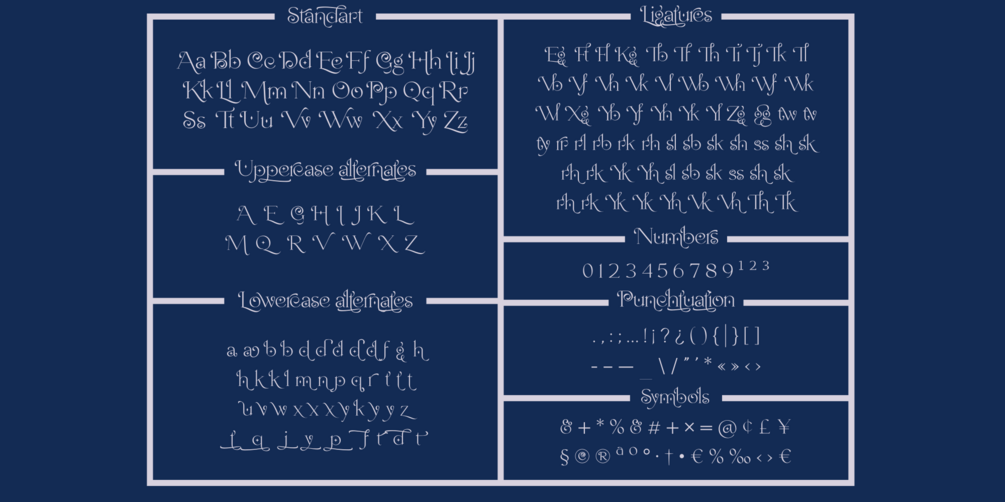 Standart
Aa Bb Cc Dd Ee Ff Gg Hh Ii Jj
Kk Ll Mm Nn Oo Pp Qq Rr
Ss Tt Uu Vv Ww Xx Yy Zz
Uppercase alternates
A E G H I J K L
M Q R V W X Z
Lowercase alternates
a a b b d d d d d f g h
h k k l m n p q r t t t
u v w x x x y k y y z
t q j y p f t d t
Ligatures
Eg Ff Fl Kg Tb Tf Th Ti Tj Tk Tl
Vb Vf Vh Vk Vl Wb Wh Wf Wk
Wl Xg Yb Yf Yh Yk Yl Zg gg tw tv
ty rr rl rb rk rh sl sb sk sh ss sh sk
rh rk Yk Yh sl sb sk ss sh sk
rh rk Yk Yk Yh Vk Vh Th Tk
Numbers
0 1 2 3 4 5 6 7 8 9 ¹ ² ³
Punchtuation
. , : ; … ! ¡ ? ¿ ( ) { | } [ ]
- – — _ \ / " ' * « » ‹ ›
Symbols
& + * % & # + × = @ ¢ £ ¥
§ © ® ª º ° · † • € % ‰ ‹ › €